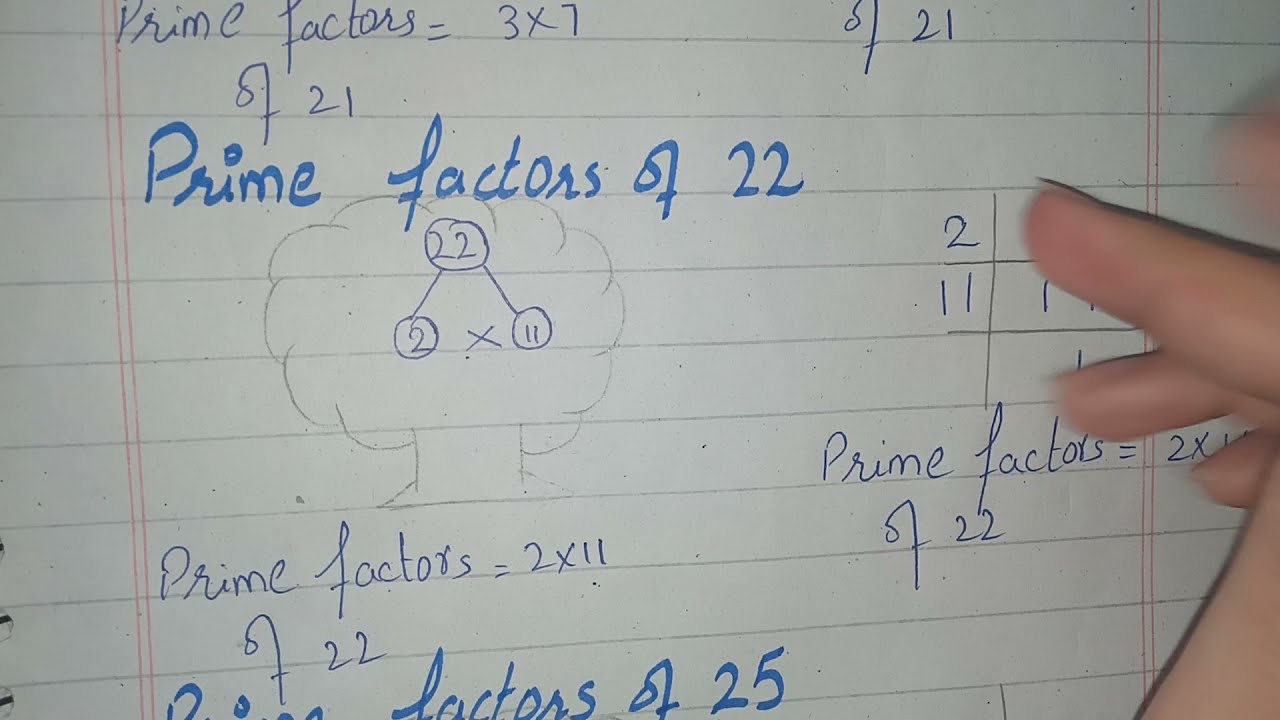 Prime factors = 3x7
of 21
of 21
Prime factors of 22
22
2 x 11
2
11
1
Prime factors = 2x
of 22
Prime factors = 2x11
of 22
Prime factors of 25